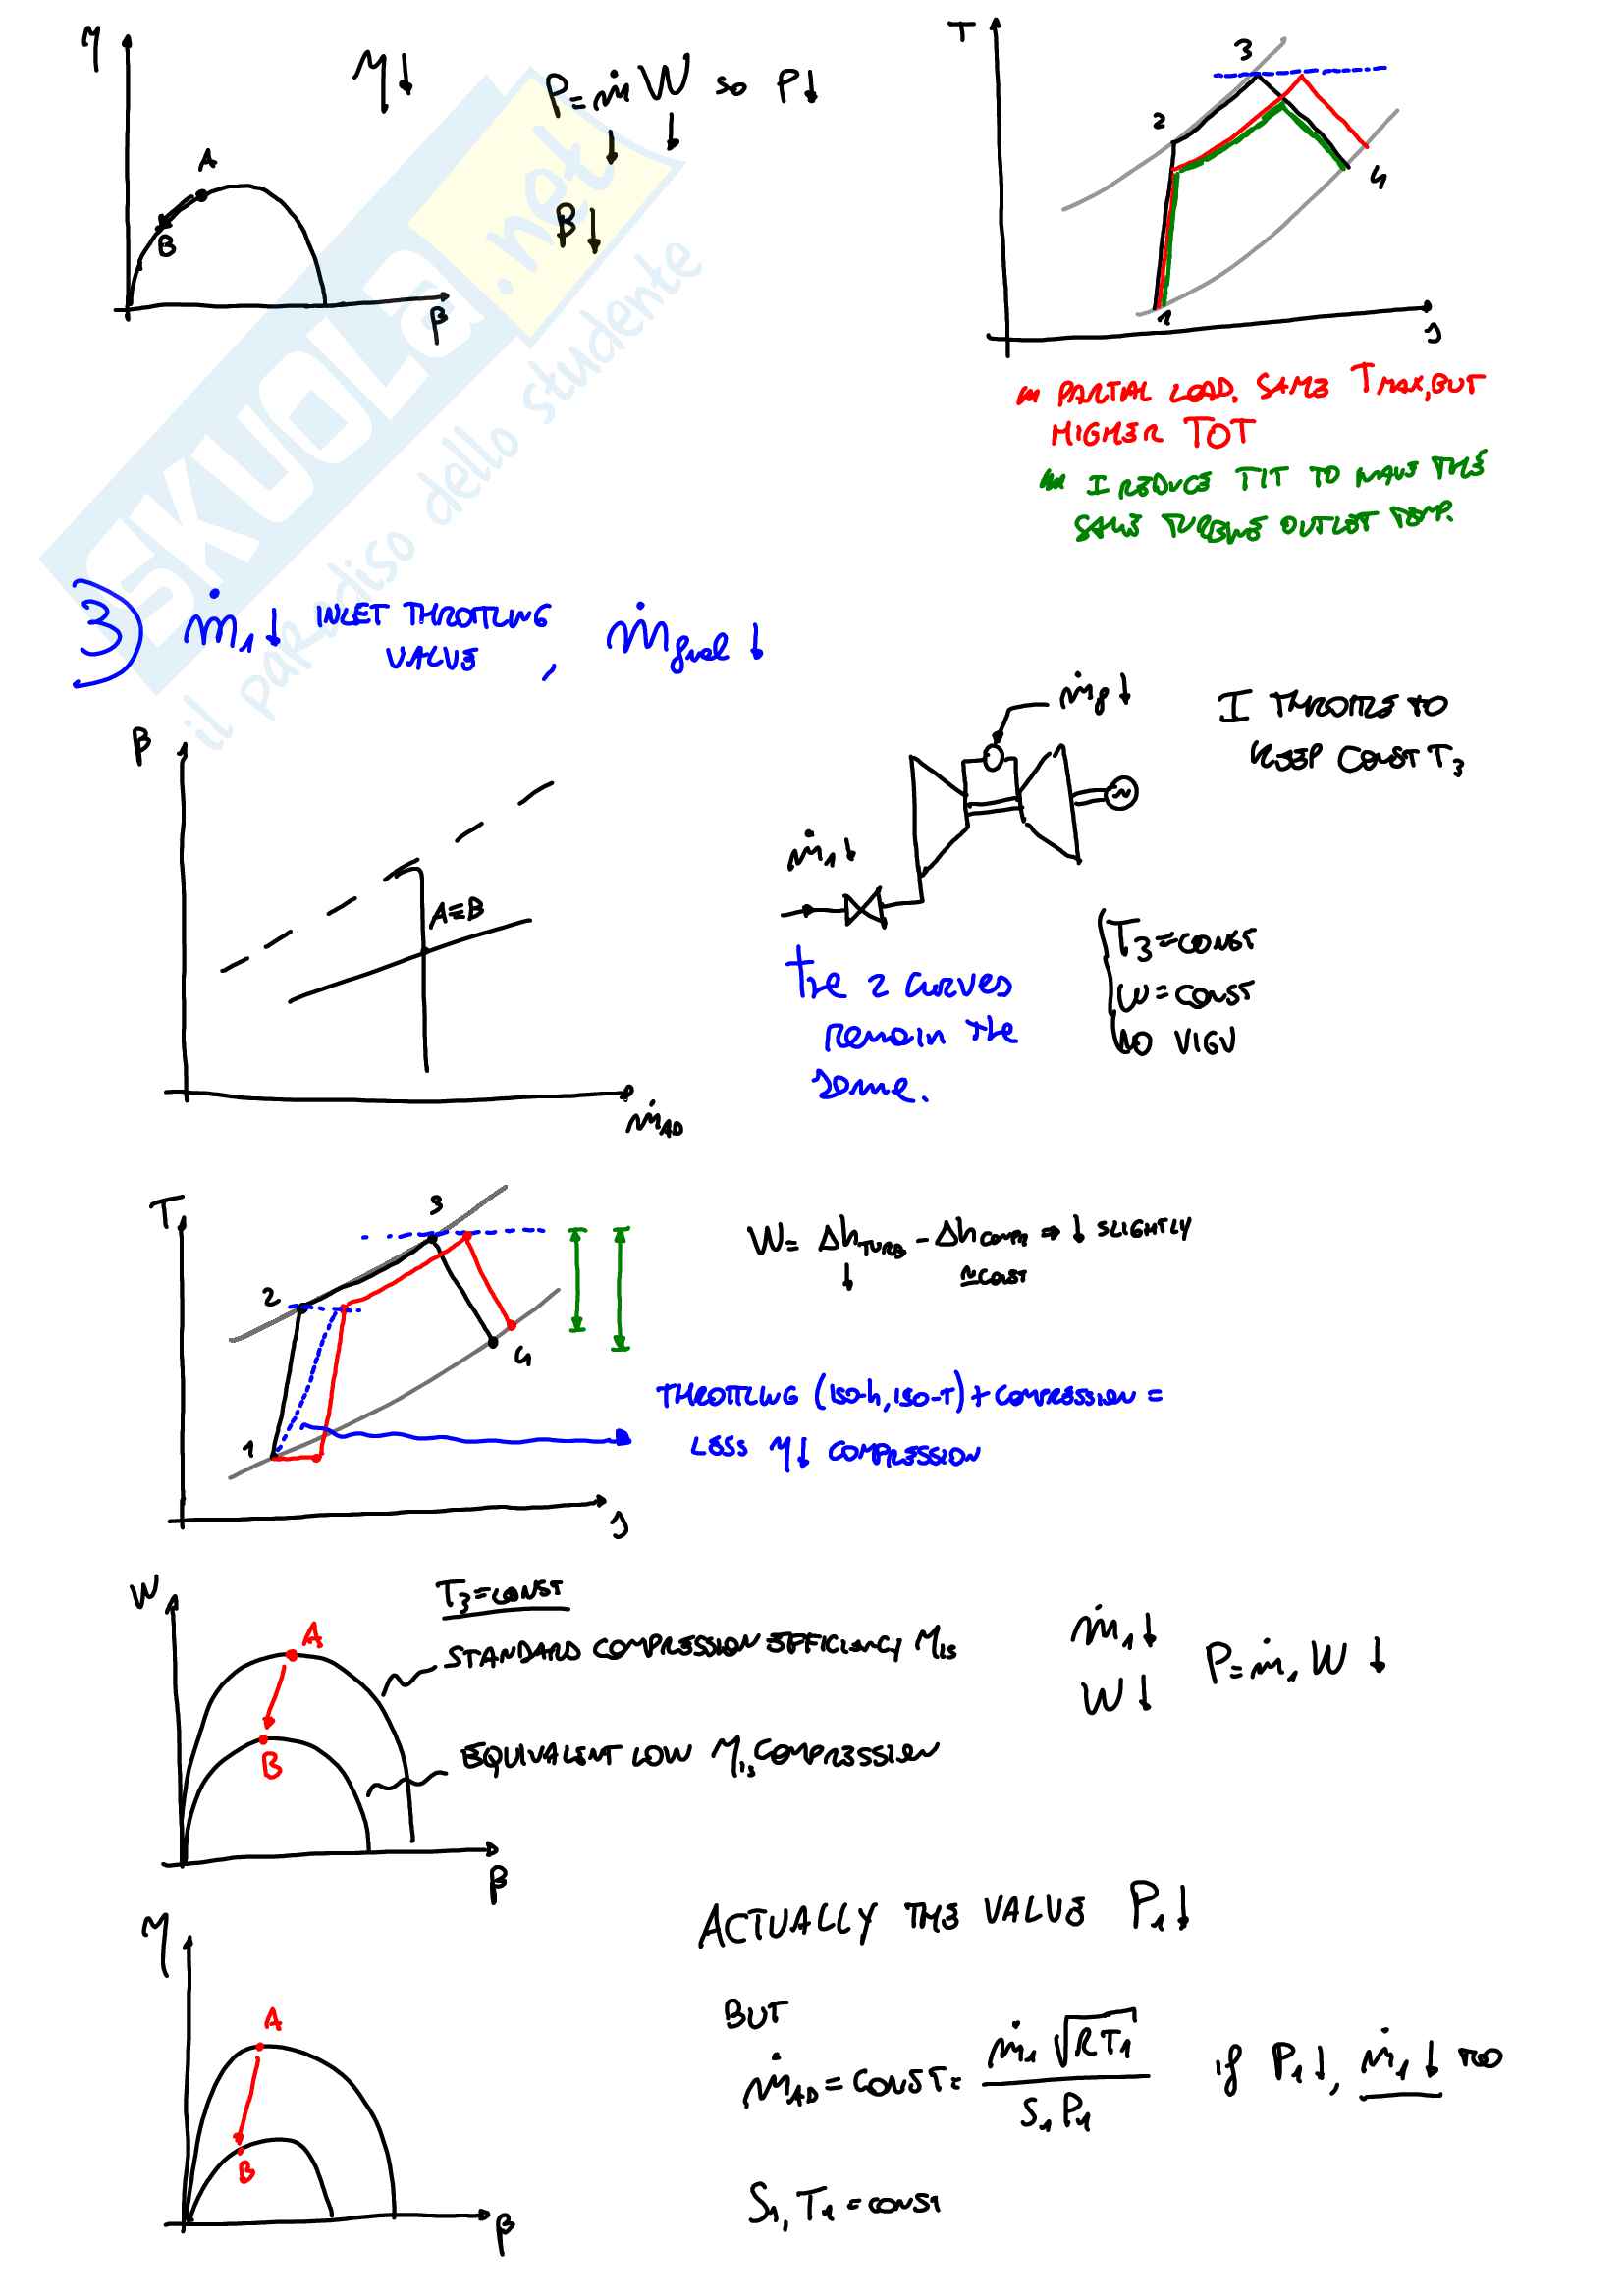 η
η↓
P = ṁ W so P↓
↓ ↓
β↓
A
B
β
T
3
2
4
1
s
PARTIAL LOAD, SAME TMAX, BUT
HIGHER TOT
I REDUCE TIT TO HAVE THE
SAME TURBINE OUTLET TEMP.
SKUOLA.net
il paradiso dello studente
3) ṁ1↓ INLET THROTTLING
VALVE , ṁfuel ↓
β
A≡B
ṁAD
ṁf↓
ṁ1↓
I THROTTLE TO
KEEP CONST T3
the 2 curves
remain the
same.
T3 = CONST
ω = CONST
NO VIGV
T
3
2
4
1
s
W = ΔhTURB - ΔhCOMPR ⇒ ↓ SLIGHTLY
↓ ≃CONST
THROTTLING (ISO-h, ISO-T) + COMPRESSION =
LESS η↓ COMPRESSION
W
T3 = CONST
A
STANDARD COMPRESSION EFFICIENCY ηis
B
EQUIVALENT LOW ηis COMPRESSION
β
ṁ1↓
W↓
P = ṁ1 W ↓
η
A
B
β
ACTUALLY THE VALVE P1↓
BUT
ṁAD = CONST = ṁ1 √RT1 / S1 P1 if P1↓, ṁ1↓ TOO
S1, T1 = CONST